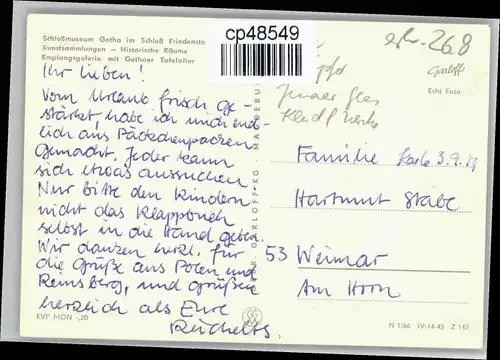 Schloßmuseum Gotha im Schloß Friedenste
Kunstsammlungen — Historische Räume
Empfangsgalerie mit Gothaer Tafelaltar
cp48549
26.8
Garloff
Echt Foto
Jenaer Glas
Ihr Lieben!
Vom Urlaub frisch ge-
stärkt habe ich mich end-
lich ans Päckchenpacken
gemacht. Jeder kann
sich etwas aussuchen.
Nur bitte den Kindern
nicht das Klappbuch
selbst in die Hand geben.
Wir danken herzl. für
die Grüße aus Polen und
Reinsberg, und grüßen
herzlich als Eure
Reichelts.
EVP MDN -,20
GARLOFF KG MAGDEBURG
Familie Karte 3.9.
Hartmut Stabe
53 Weimar
Am Horn
N 1/66 IV-14-45 Z 142